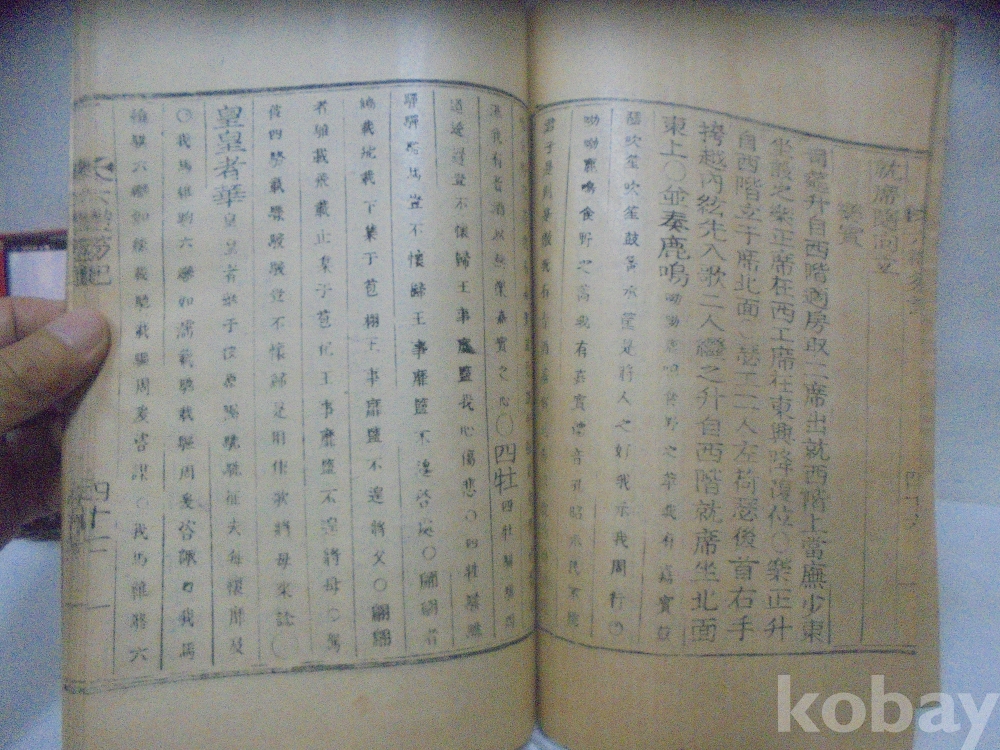 就席隨向立
樂賓
司筵升自西階適房取二席出就西階上當廡少東
坐設之樂正席在西工席在東興降復位○樂正升
自西階立于席北面○瑟工二人左荷瑟後首右手
挎越內弦先入歌二人繼之升自西階就席坐北面
東上○並奏鹿鳴呦呦鹿鳴食野之苹我有嘉賓鼓
瑟吹笙吹笙鼓簧承筐是將人之好我示我周行○
呦呦鹿鳴食野之蒿我有嘉賓德音孔昭
嘉賓之心○四牡四牡騑騑
豈不懷歸王事靡盬我心傷悲○四牡騑騑
豈不懷歸王事靡盬不遑啓處○翩翩者
鵻載飛載下集于苞栩王事靡盬不遑將父○翩翩
者鵻載飛載止集于苞杞王事靡盬不遑將母○駕
彼四駱載驟駸駸豈不懷歸是用作歌將母來諗○
皇皇者華皇皇者華于彼原隰駪駪征夫每懷靡及
○我馬維駒六轡如濡載馳載驅周爰咨諏○我馬
維騏六轡如絲載馳載驅周爰咨謀○我馬維駱六
四十二
kobay